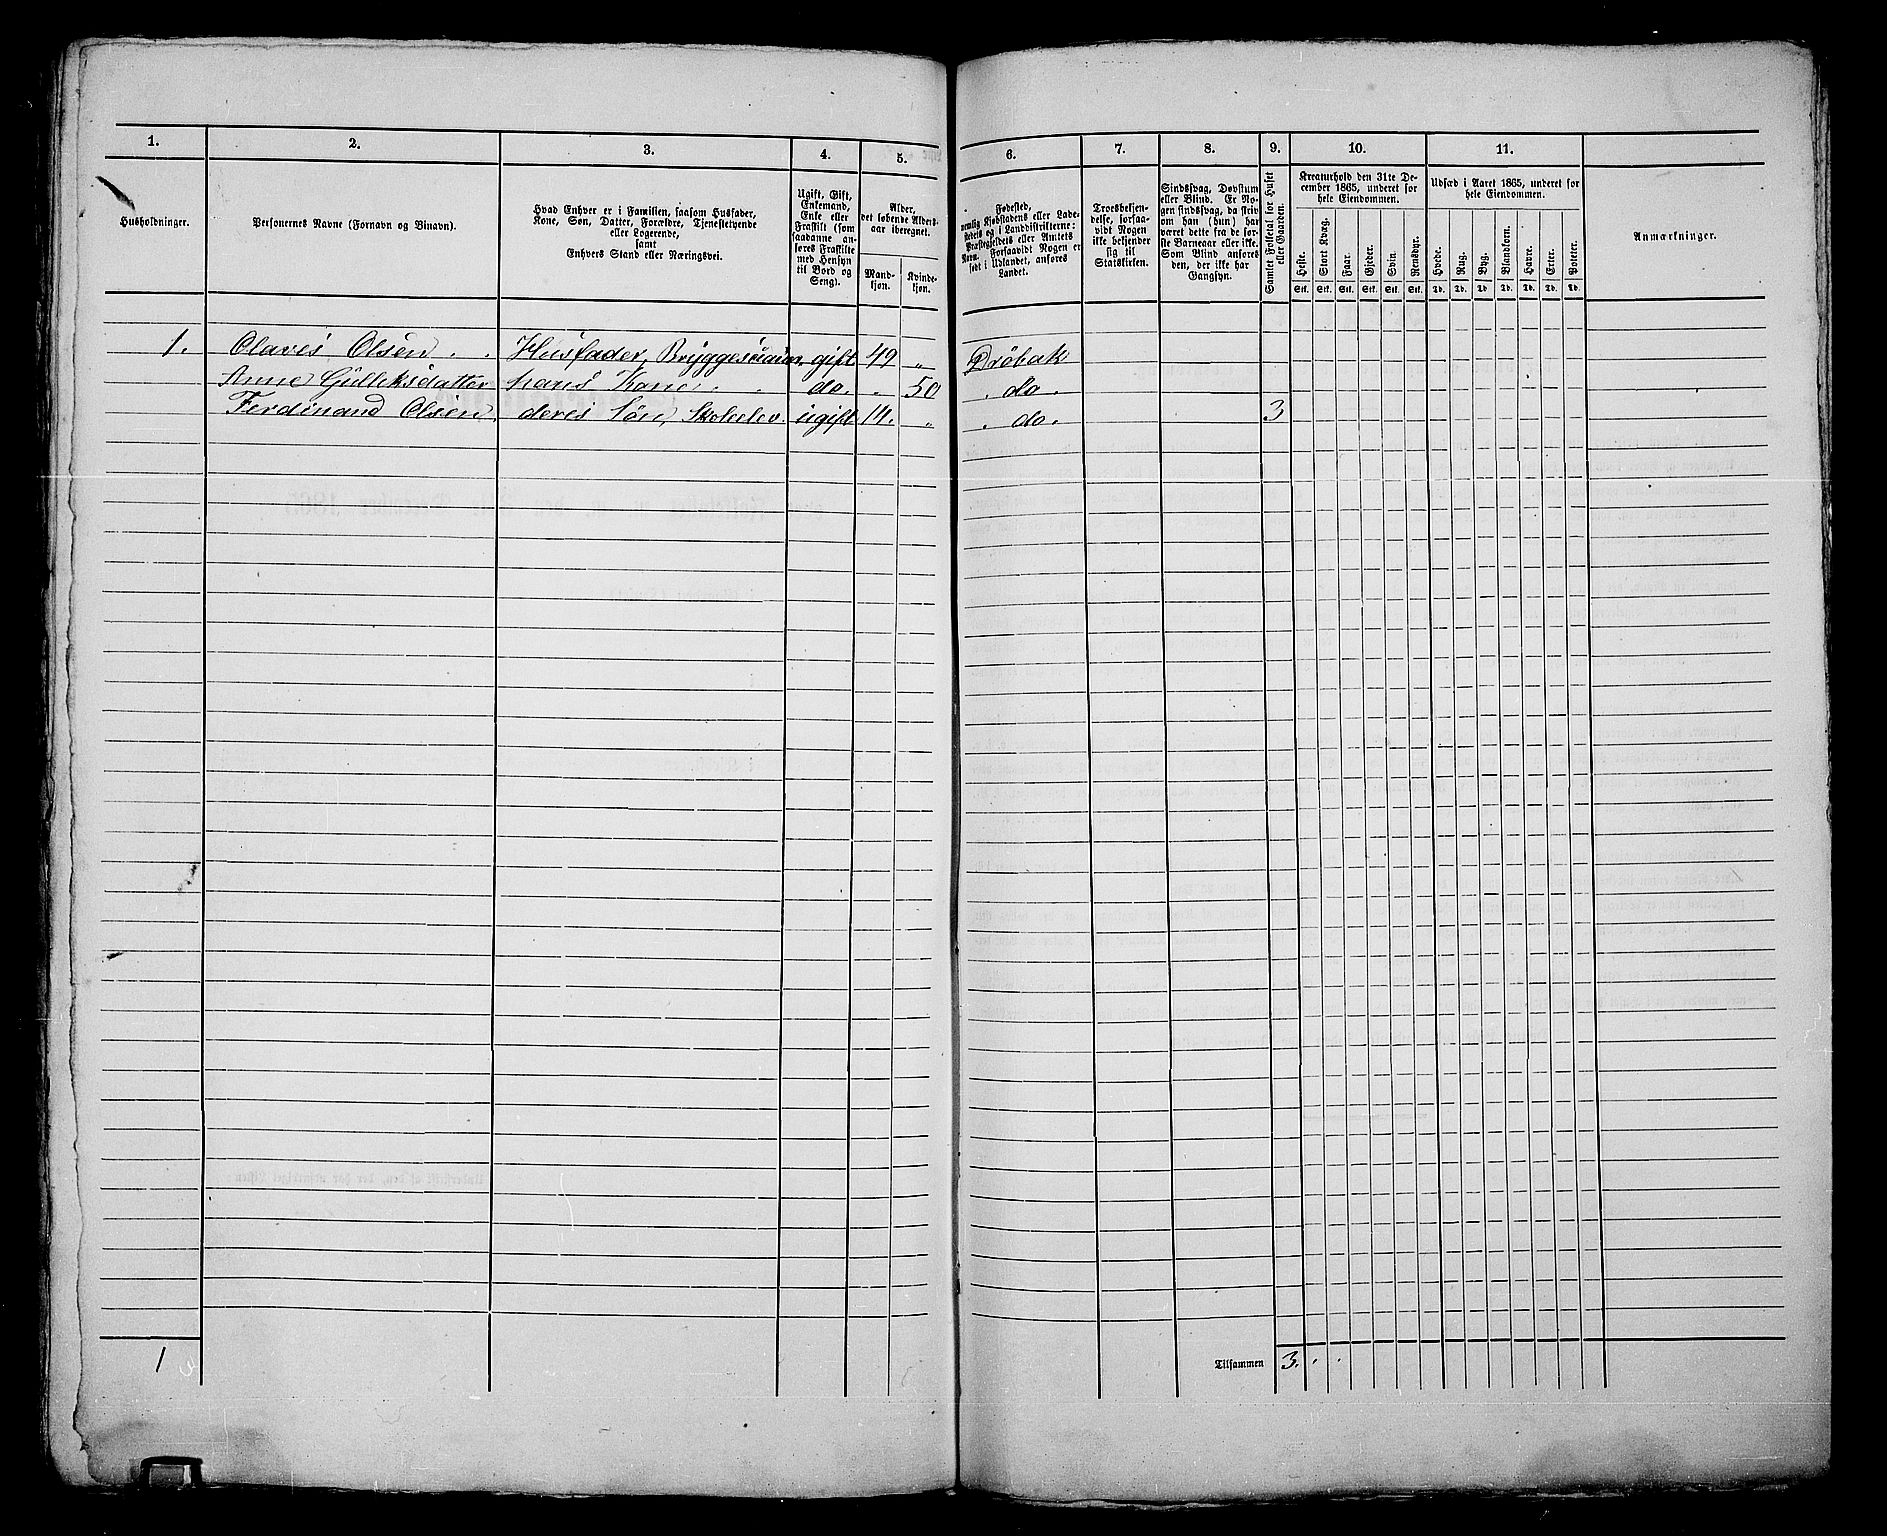 1.
2.
3.
4.
5.
6.
7.
8.
9.
10.
11.
Husholdninger.
Personernes Navne (Fornavn og Binavn).
Hvad Enhver er i Familien, saasom Husfader,
Kone, Søn, Datter, Forældre, Tjenestetyende
eller Logerende,
samt
Enhvers Stand eller Næringsvei.
Ugift, Gift,
Enkemand,
Enke eller
Fraskilt (som
saadanne an-
føres Fraskilte
med Hensyn
til Bord og
Seng).
Alder,
det løbende Alders-
aar iberegnet.
Mand-
kjøn.
Kvinde-
kjøn.
Fødested,
nemlig Kjøbstadens eller Lade-
stedets og i Landdistrikterne:
Præstegjeldets eller Amtets
Navn. Forsaavidt Nogen er
født i Udlandet, anføres
Landet.
Troesbekjen-
delse, forsaa-
vidt Nogen
ikke bekjender
sig til
Statskirken.
Sindssvag, Døvstum
eller Blind. Er No-
gen sindssvag, da skriv
om han (hun) har
været dette fra de før-
ste Barneaar eller ikke.
Som Blind anføres
den, der ikke har
Gangsyn.
Samlet Folketal for Huset
eller Gaarden.
Kreaturhold den 31te De-
cember 1865, underet for
hele Eiendommen.
Heste.
Stort Kvæg.
Faar.
Gjeder.
Svin.
Rensdyr.
Stk. Stk. Stk. Stk. Stk. Stk.
Udsæd i Aaret 1865, underet for
hele Eiendommen.
Hvede.
Rug.
Byg.
Blandkorn.
Havre.
Erter.
Poteter.
Td. Td. Td. Td. Td. Td. Td.
Anmærkninger.
1. Olaves Olsen . . Husfader, Bryggesjauer gift 49 „ Drøbak
Anne Gulleksdatter hans Kone . . do. „ 50 . do .
Ferdinand Olsen. deres Søn, Skoleelev. ugift 14. „ . do . 3
1
Tilsammen 3. . .